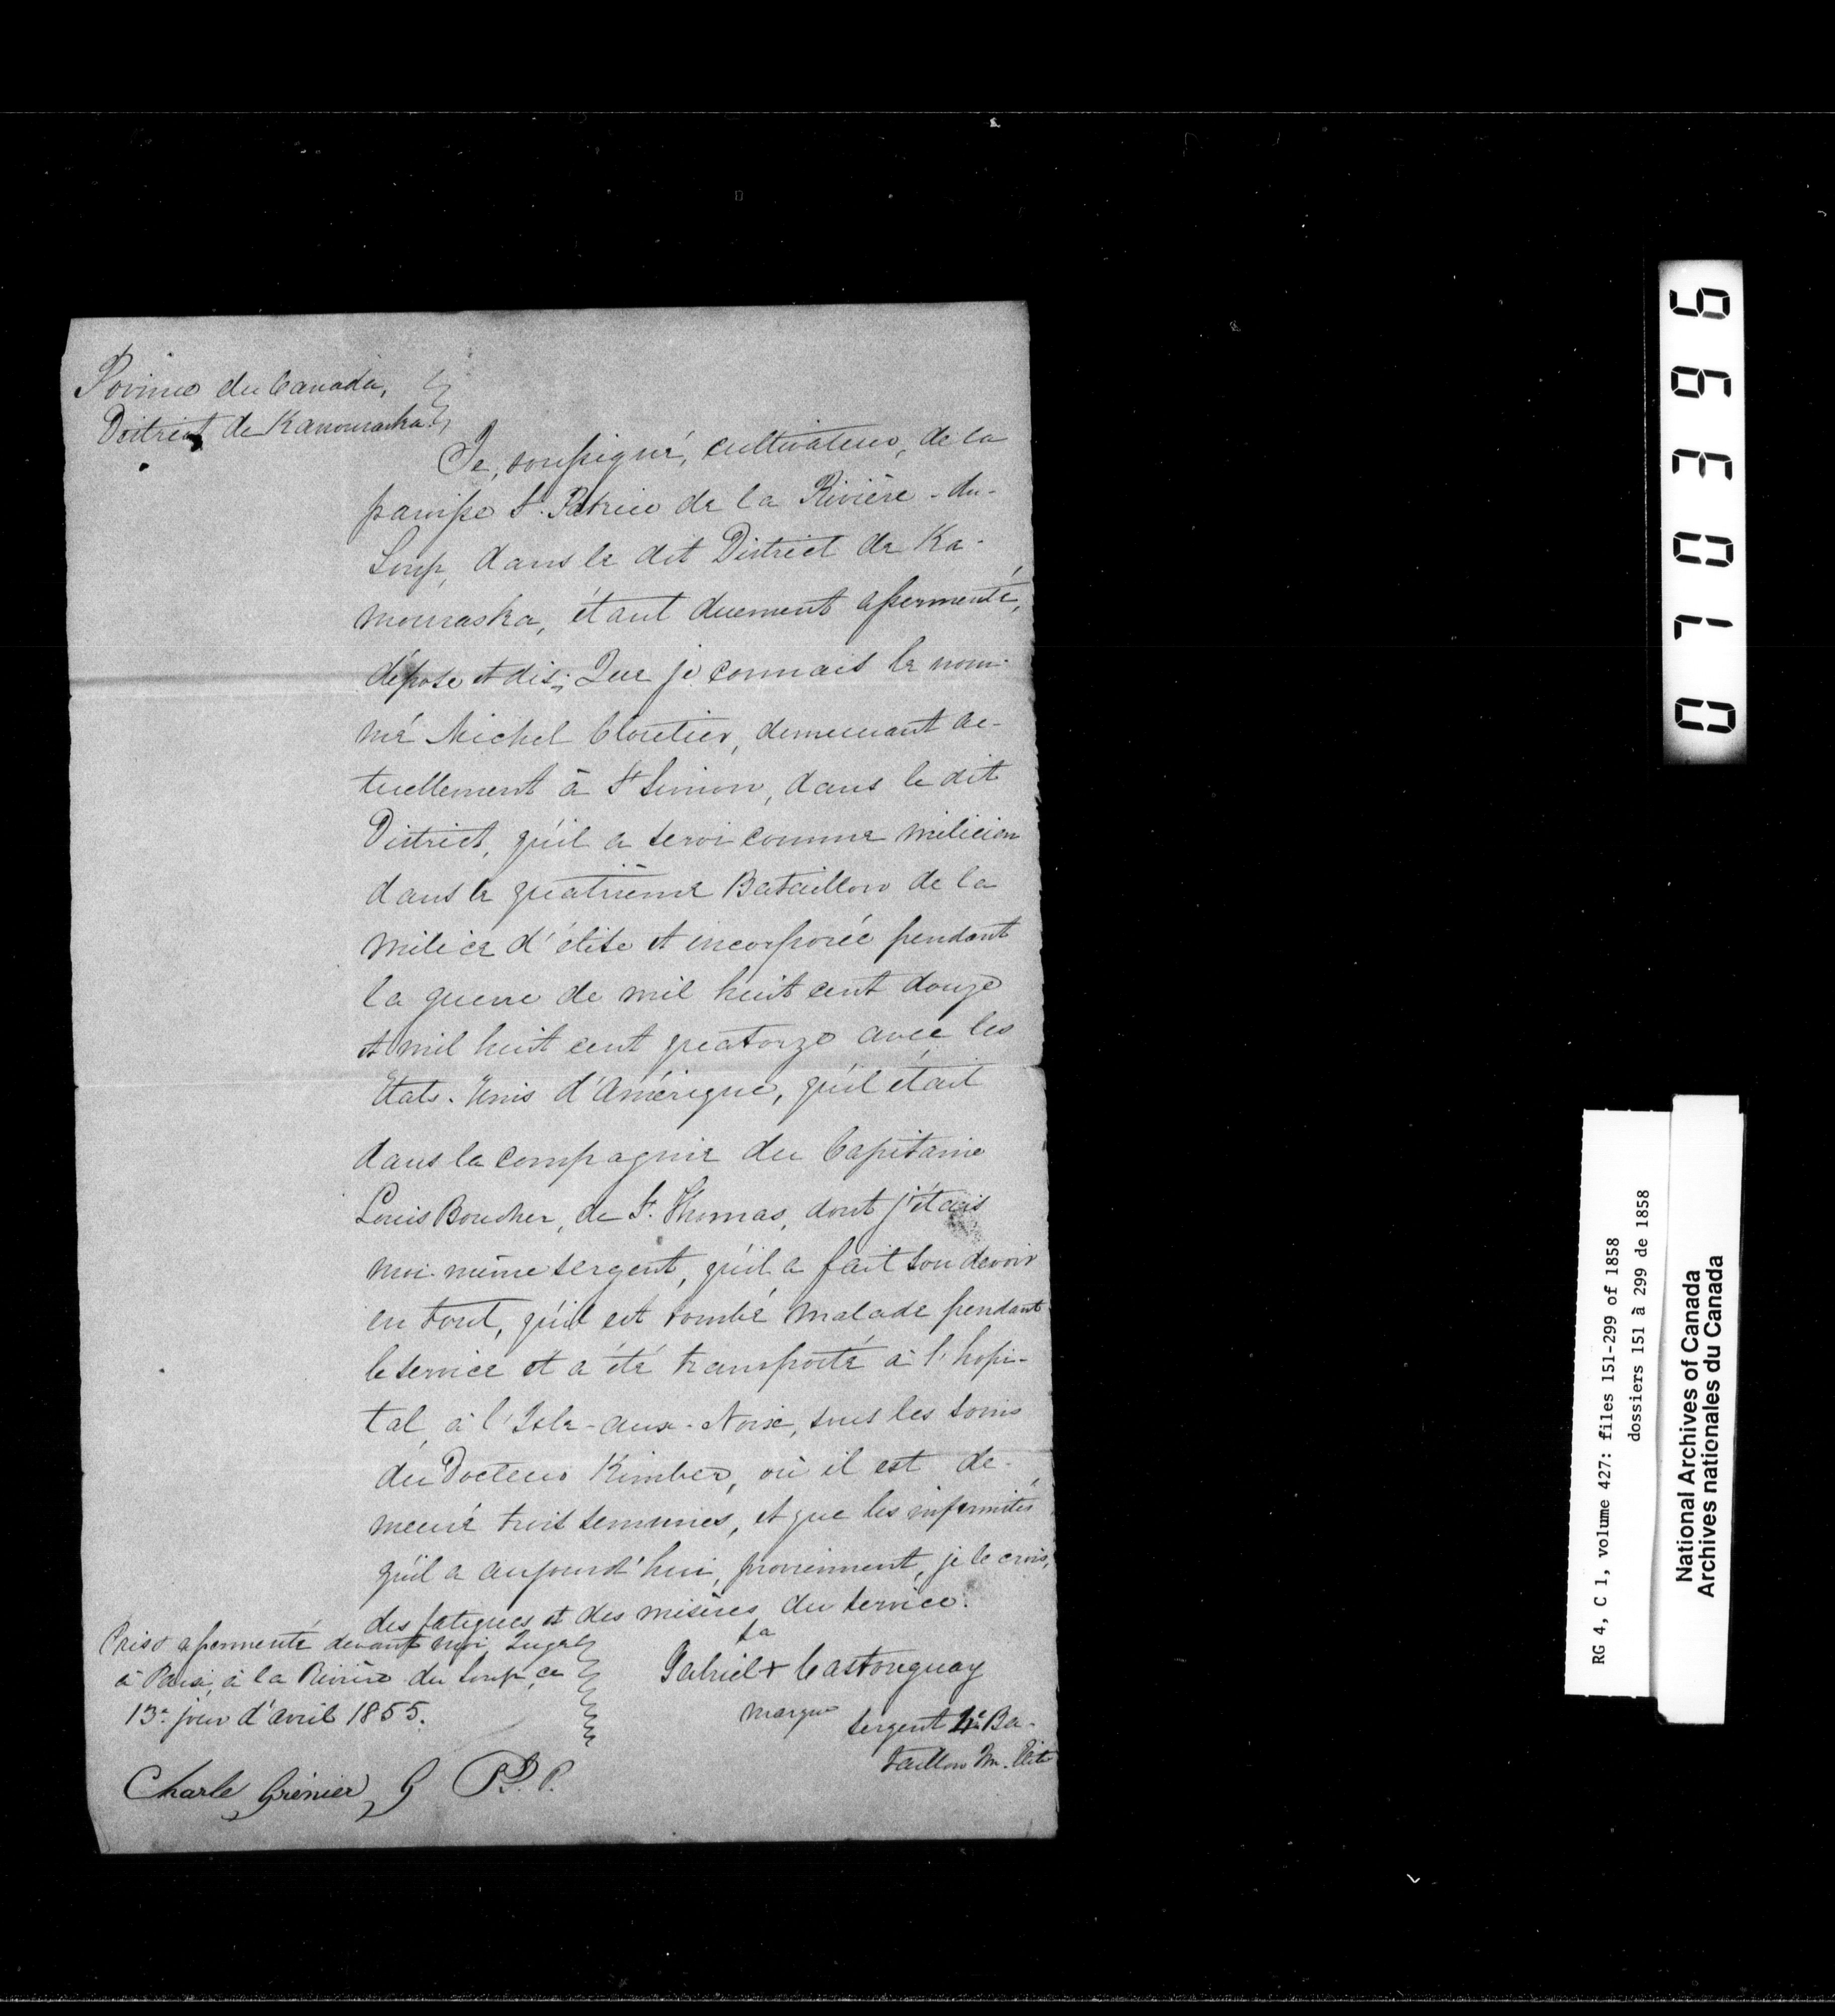 Province du Canada,
District de Kamouraska.
Je, soussigné, cultivateur, de la
paroisse St. Patrice de la Rivière-du-
Loup, dans le dit District de Ka-
mouraska, étant duement assermenté,
dépose et dis; Que je connais le nom-
mé Michel Cloutier, demeurant ac-
tuellement à St Simon, dans le dit
District, qu'il a servi comme milicien
dans le quatrième Bataillon de la
milice d'élite et incorporée pendant
la guerre de mil huit cent douze
et mil huit cent quatorze avec les
Etats-Unis d'Amérique, qu'il était
dans la compagnie du Capitaine
Louis Boucher, de St. Thomas, dont j'étais
moi-même sergent, qu'il a fait son devoir
en tout, qu'il est tombé malade pendant
le service et a été transporté à l'hopi-
tal, à l'Isle-aux-Noix, sous les soins
du Docteur Kimber, où il est de-
meuré trois semaines, et que les infirmités
qu'il a aujourd'hui, proviennent, je le crois,
des fatigues et des misères du service.
Pris et assermenté devant moi, Juge
à Paix, à la Rivière du Loup, ce
13e jour d'avril 1855.
Charle Grénier J P.
sa
Gabriel + Castonguay
marque
Sergent 4e Ba-
taillon M. Elite
070396
RG 4, C 1, volume 427: files 151-299 of 1858
dossiers 151 à 299 de 1858
National Archives of Canada
Archives nationales du Canada